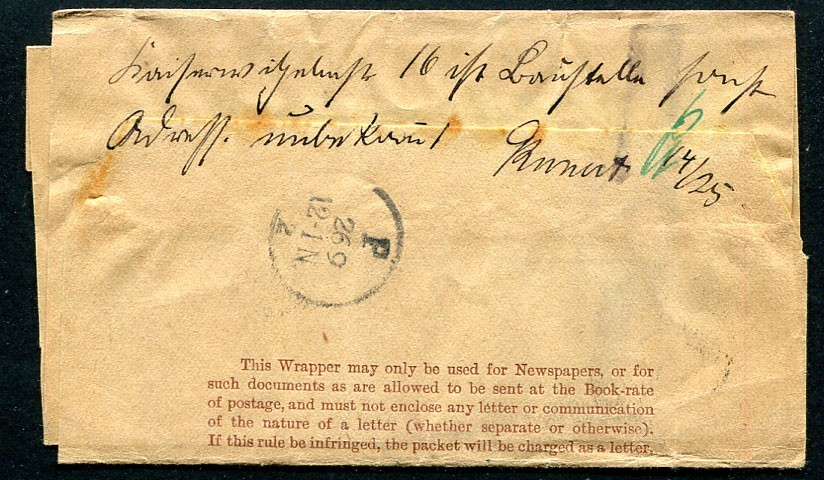 Kaiserwilhelmstr 16 ist Baustelle sonst
Adress. unbekannt
14/25
P
26 9
12-1N
2
This Wrapper may only be used for Newspapers, or for
such documents as are allowed to be sent at the Book-rate
of postage, and must not enclose any letter or communication
of the nature of a letter (whether separate or otherwise).
If this rule be infringed, the packet will be charged as a letter.